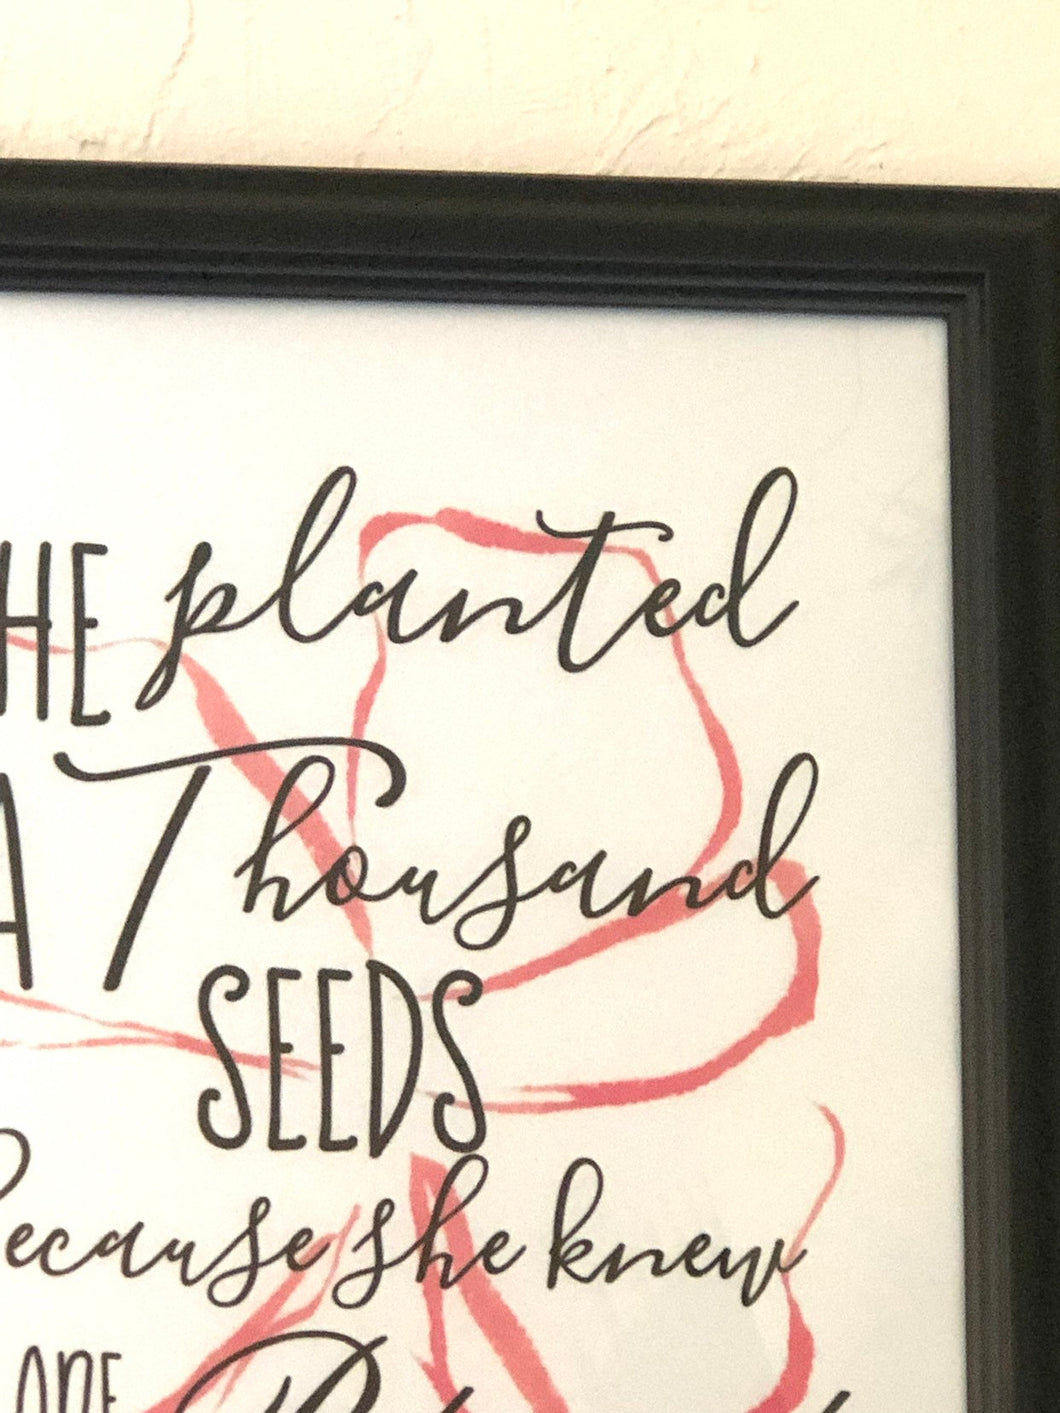 HE planted
A Thousand
SEEDS
Because she knew
one